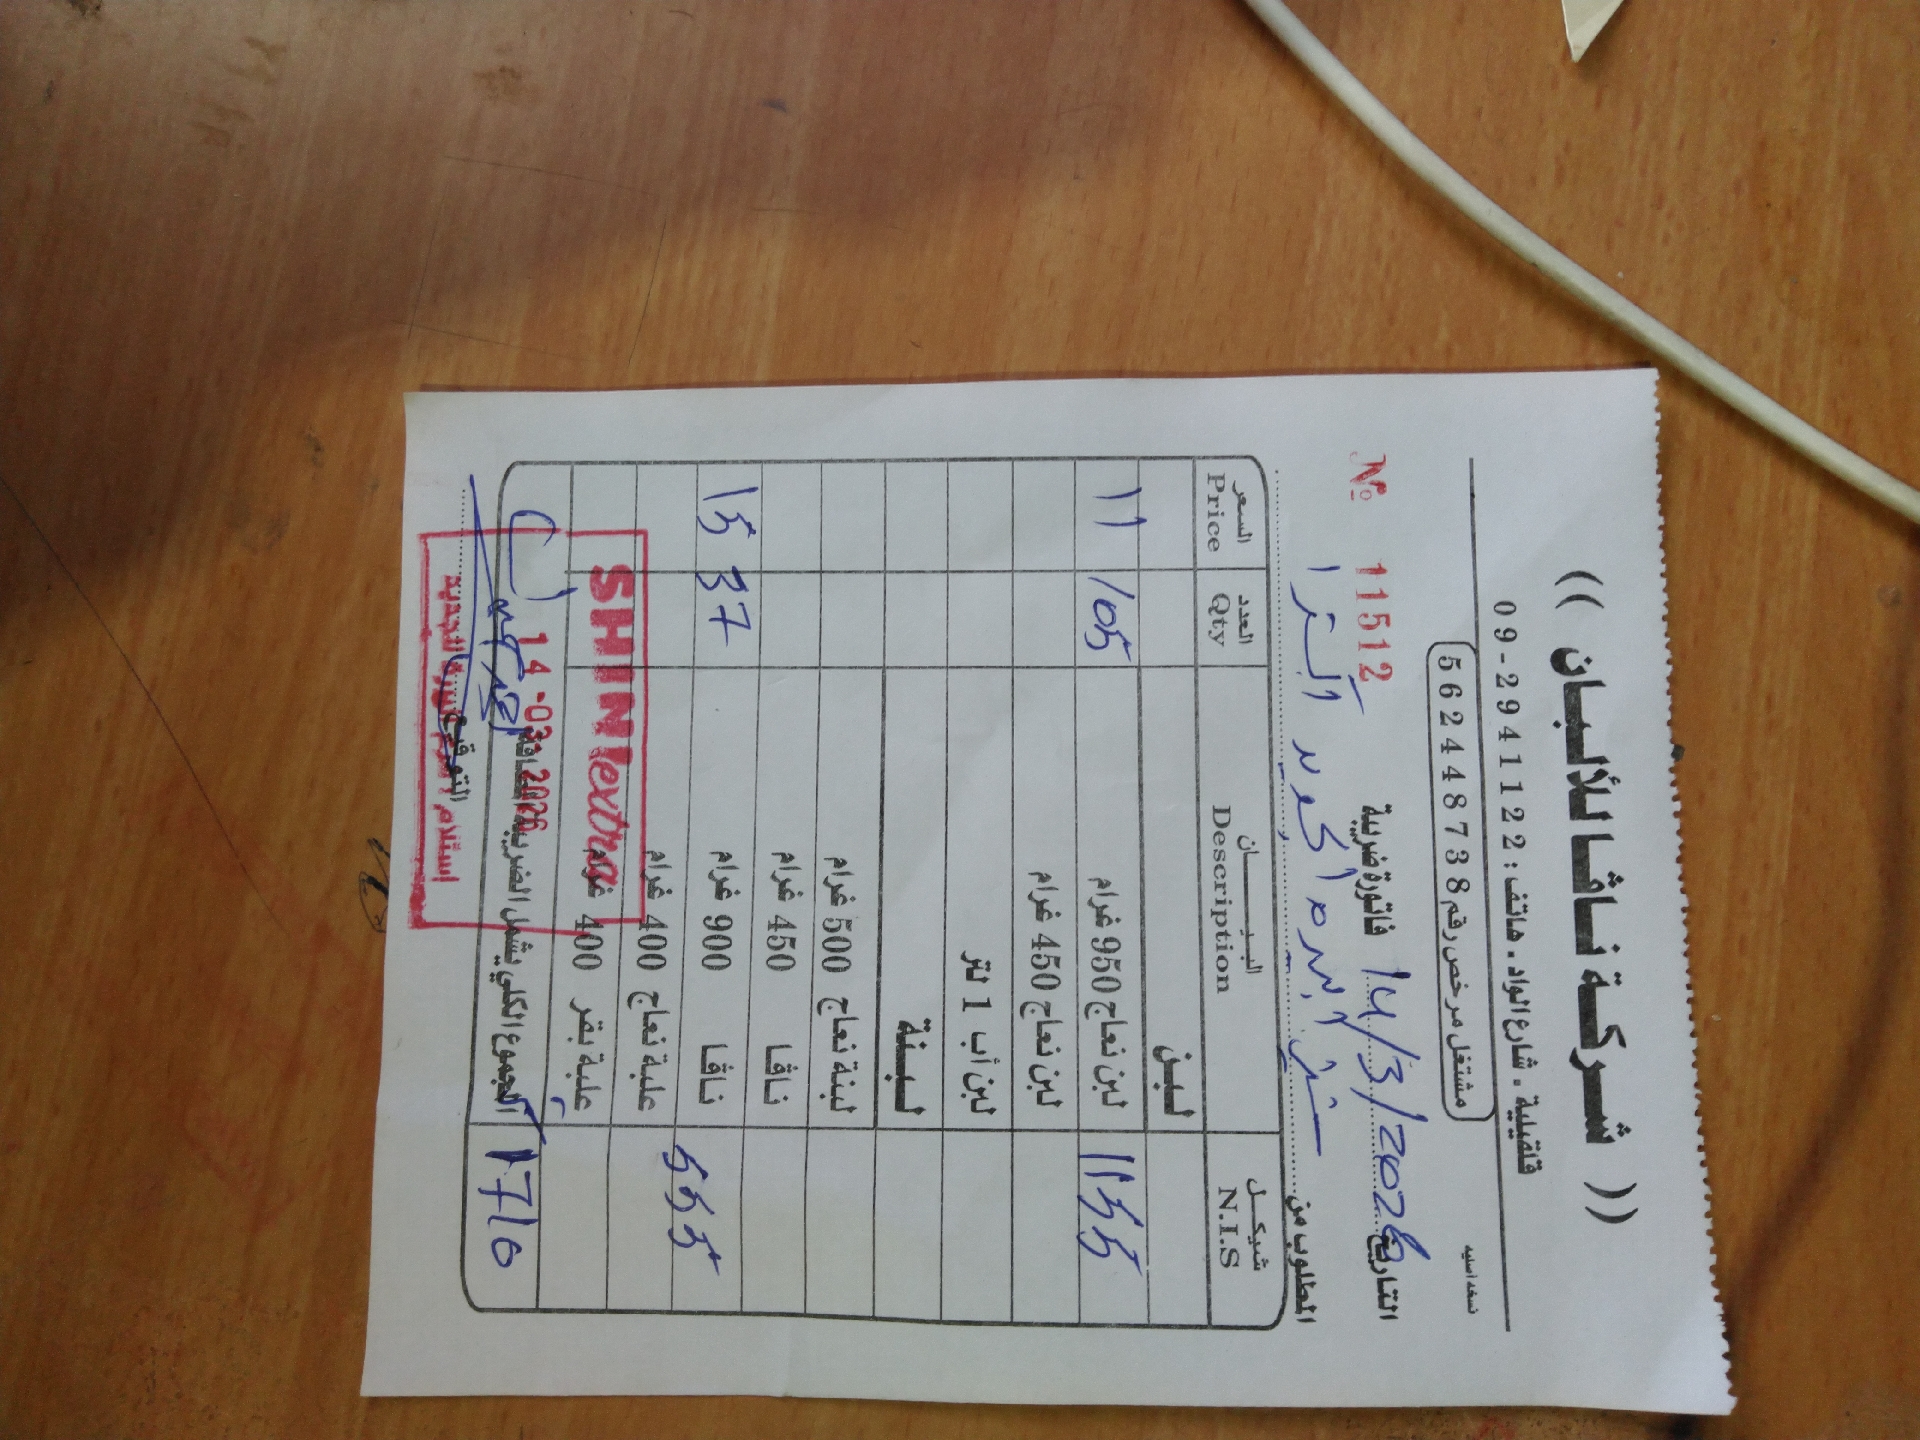 (( شركة ناڤا للألبان ))
قلقيلية - شارع الواد - هاتف : 09-2941122
نسخه اصليه
مشتغل مرخص رقم 562448738
التاريخ 14/3/2026 فاتورة ضريبية № 11512
المطلوب من
شيكل البيــان العدد السعر
N.I.S Description Qty Price
لبن
1155 لبن نعاج 950 غرام 105 11
لبن نعاج 450 غرام
لبن أب 1 لتر
لبنة
لبنة نعاج 500 غرام
ناڤا 450 غرام
555 ناڤا 900 غرام 37 15
علبة نعاج 400 غرام
علبة بقر 400 غرام
1710 المجموع الكلي يشمل الضريبة المضافة
التوقيع
SHINI extra
14 -03- 2026
استلام